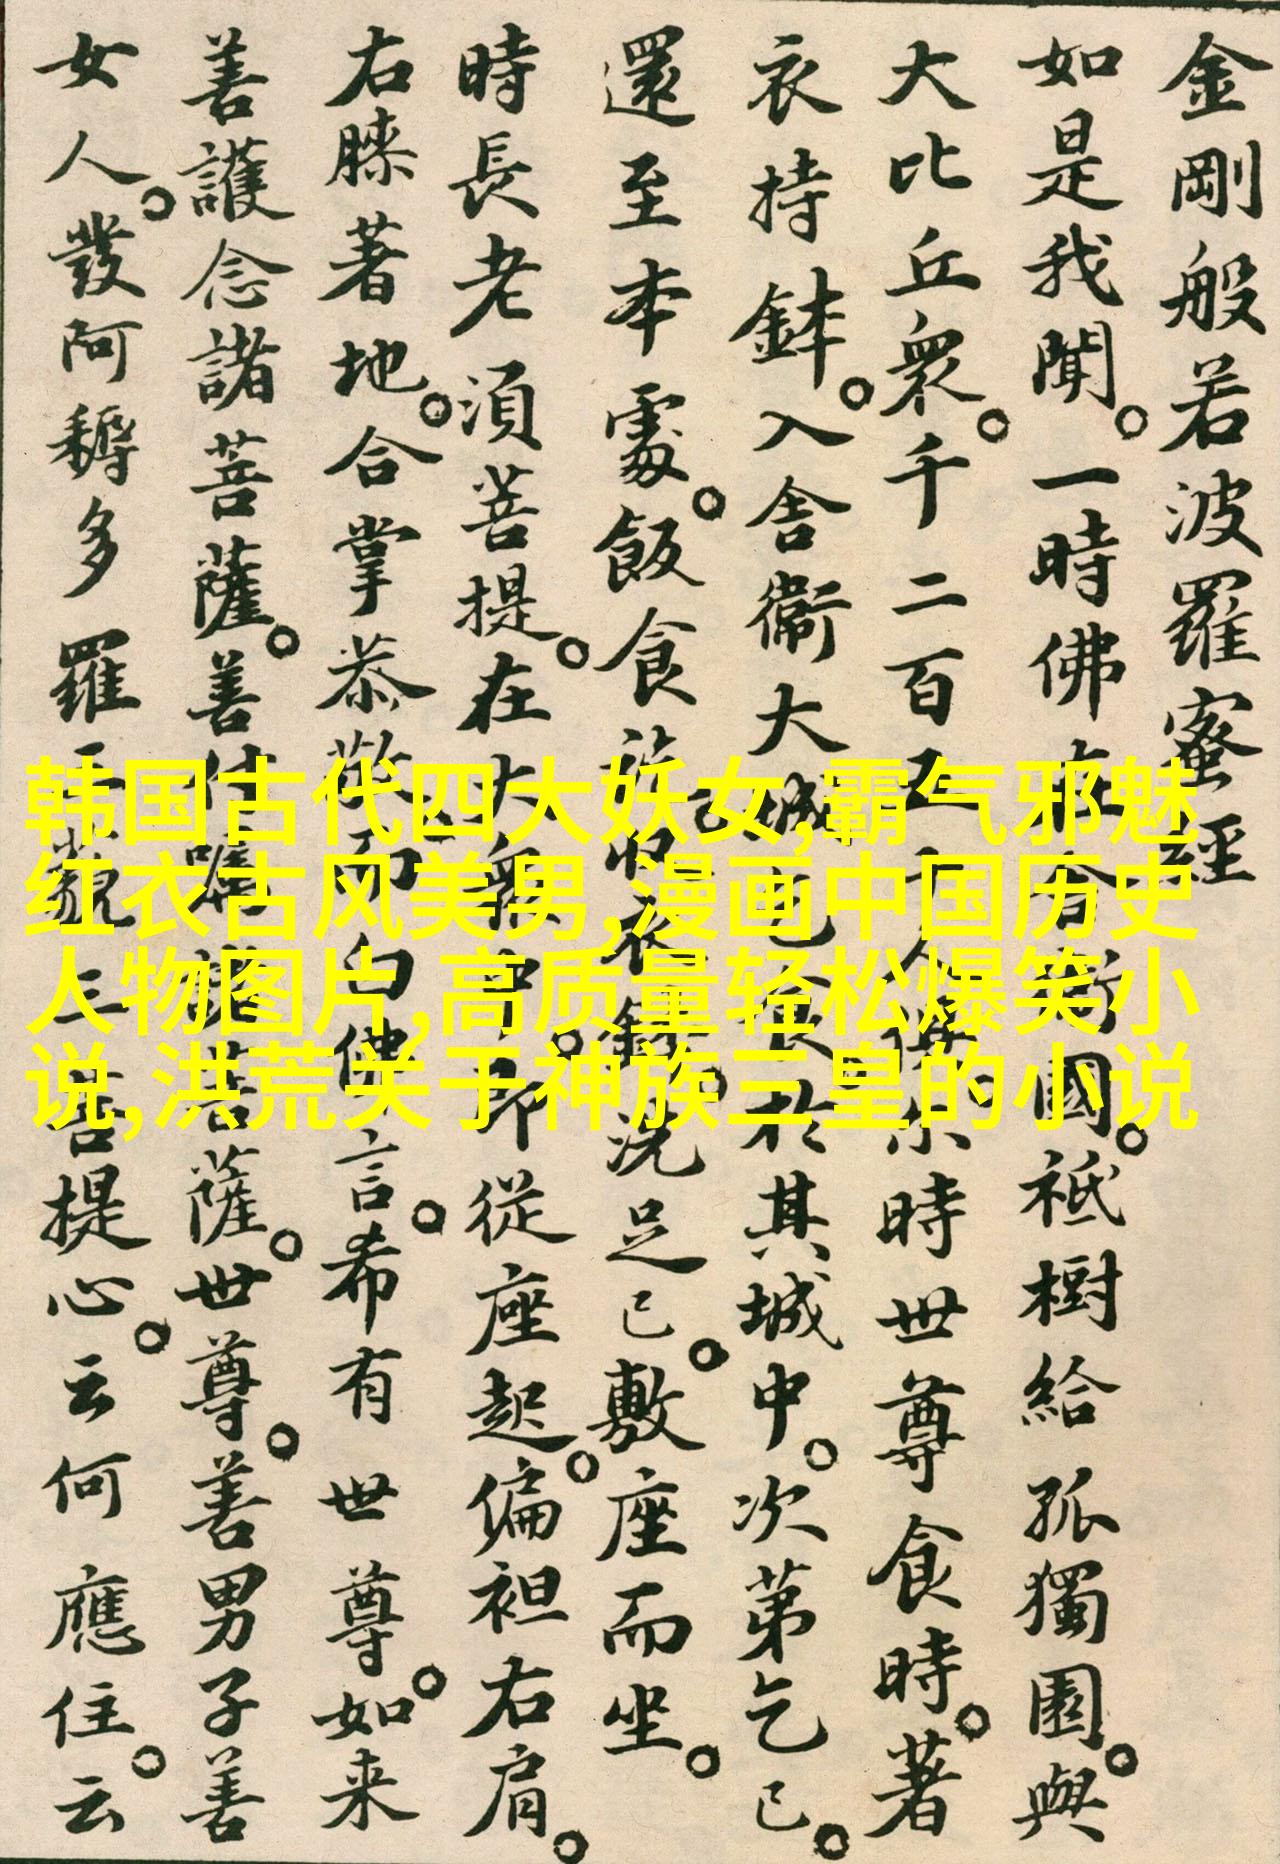 金剛般若波羅蜜經
如是我聞。一時佛在舍衛國。祇樹給孤獨園。與
大比丘衆。千二百五十人俱。尒時世尊食時。著
衣持鉢。入舍衛大城乞食。於其城中。次第乞已。
還至本處。飯食訖。收衣鉢。洗足已。敷座而坐。
時長老須菩提。在大衆中。即從座起。偏袒右肩。
右膝著地。合掌恭敬而白佛言。希有世尊。如来
善護念諸菩薩。善付囑諸菩薩。世尊。善男子善
女人。發阿耨多羅三藐三菩提心。云何應住。云
韩国古代四大妖女,霸气邪魅
红衣古风美男,漫画中国历史
人物图片,高质量轻松爆笑小
说,洪荒关于神族三皇的小说